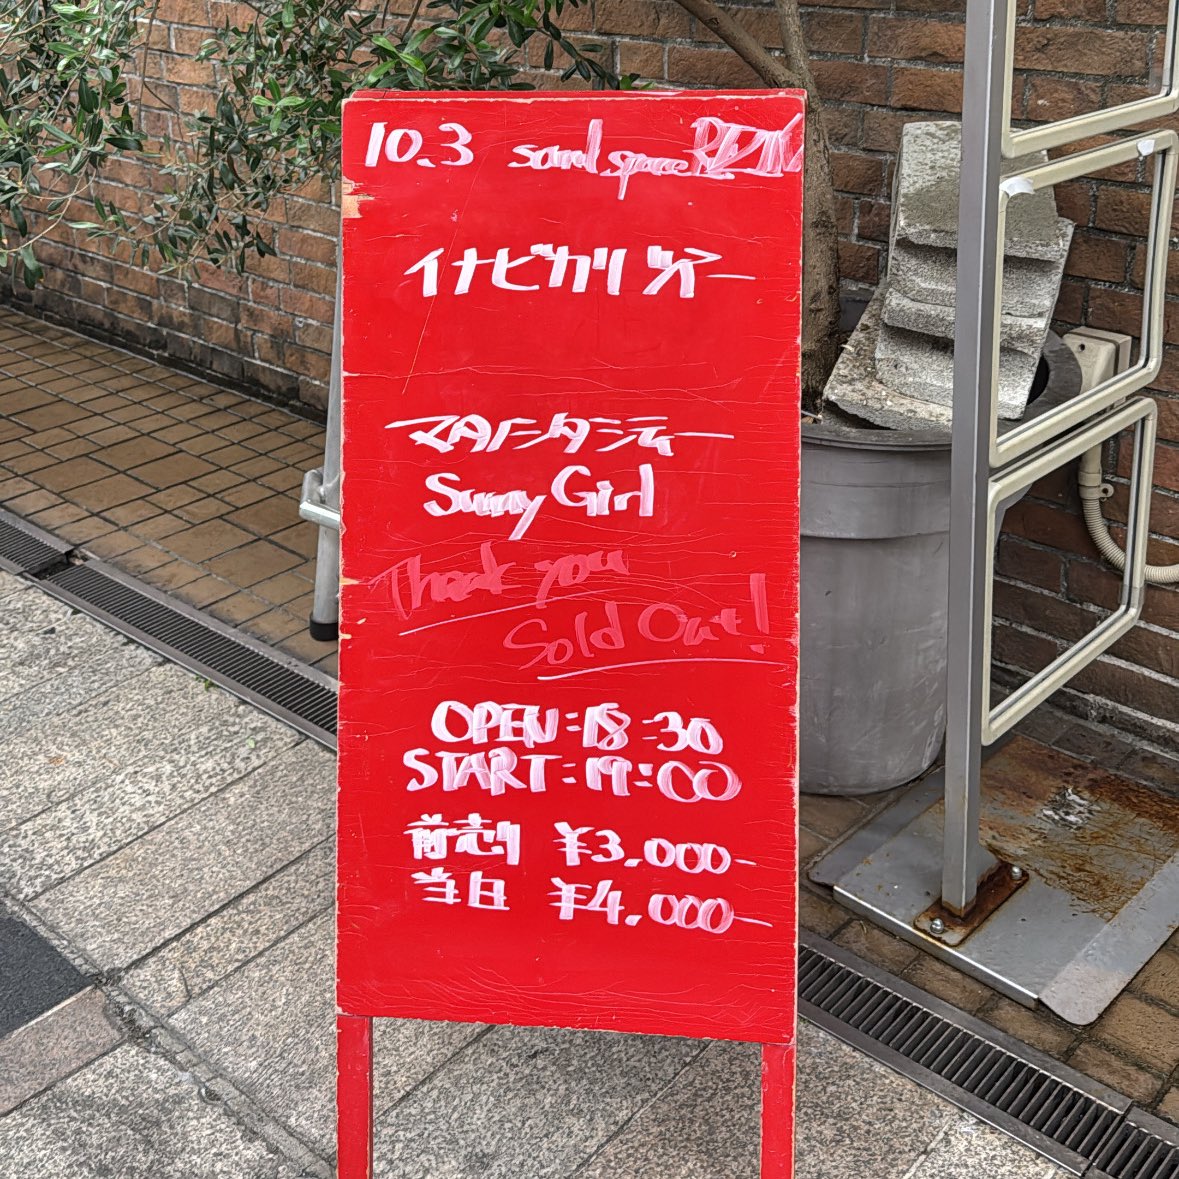 10.3 sound space
イナビカリ ツアー
Sunny Girl
Thank you
Sold Out!
OPEN:18:30
START:19:00
前売り ¥3,000-
当日 ¥4,000-